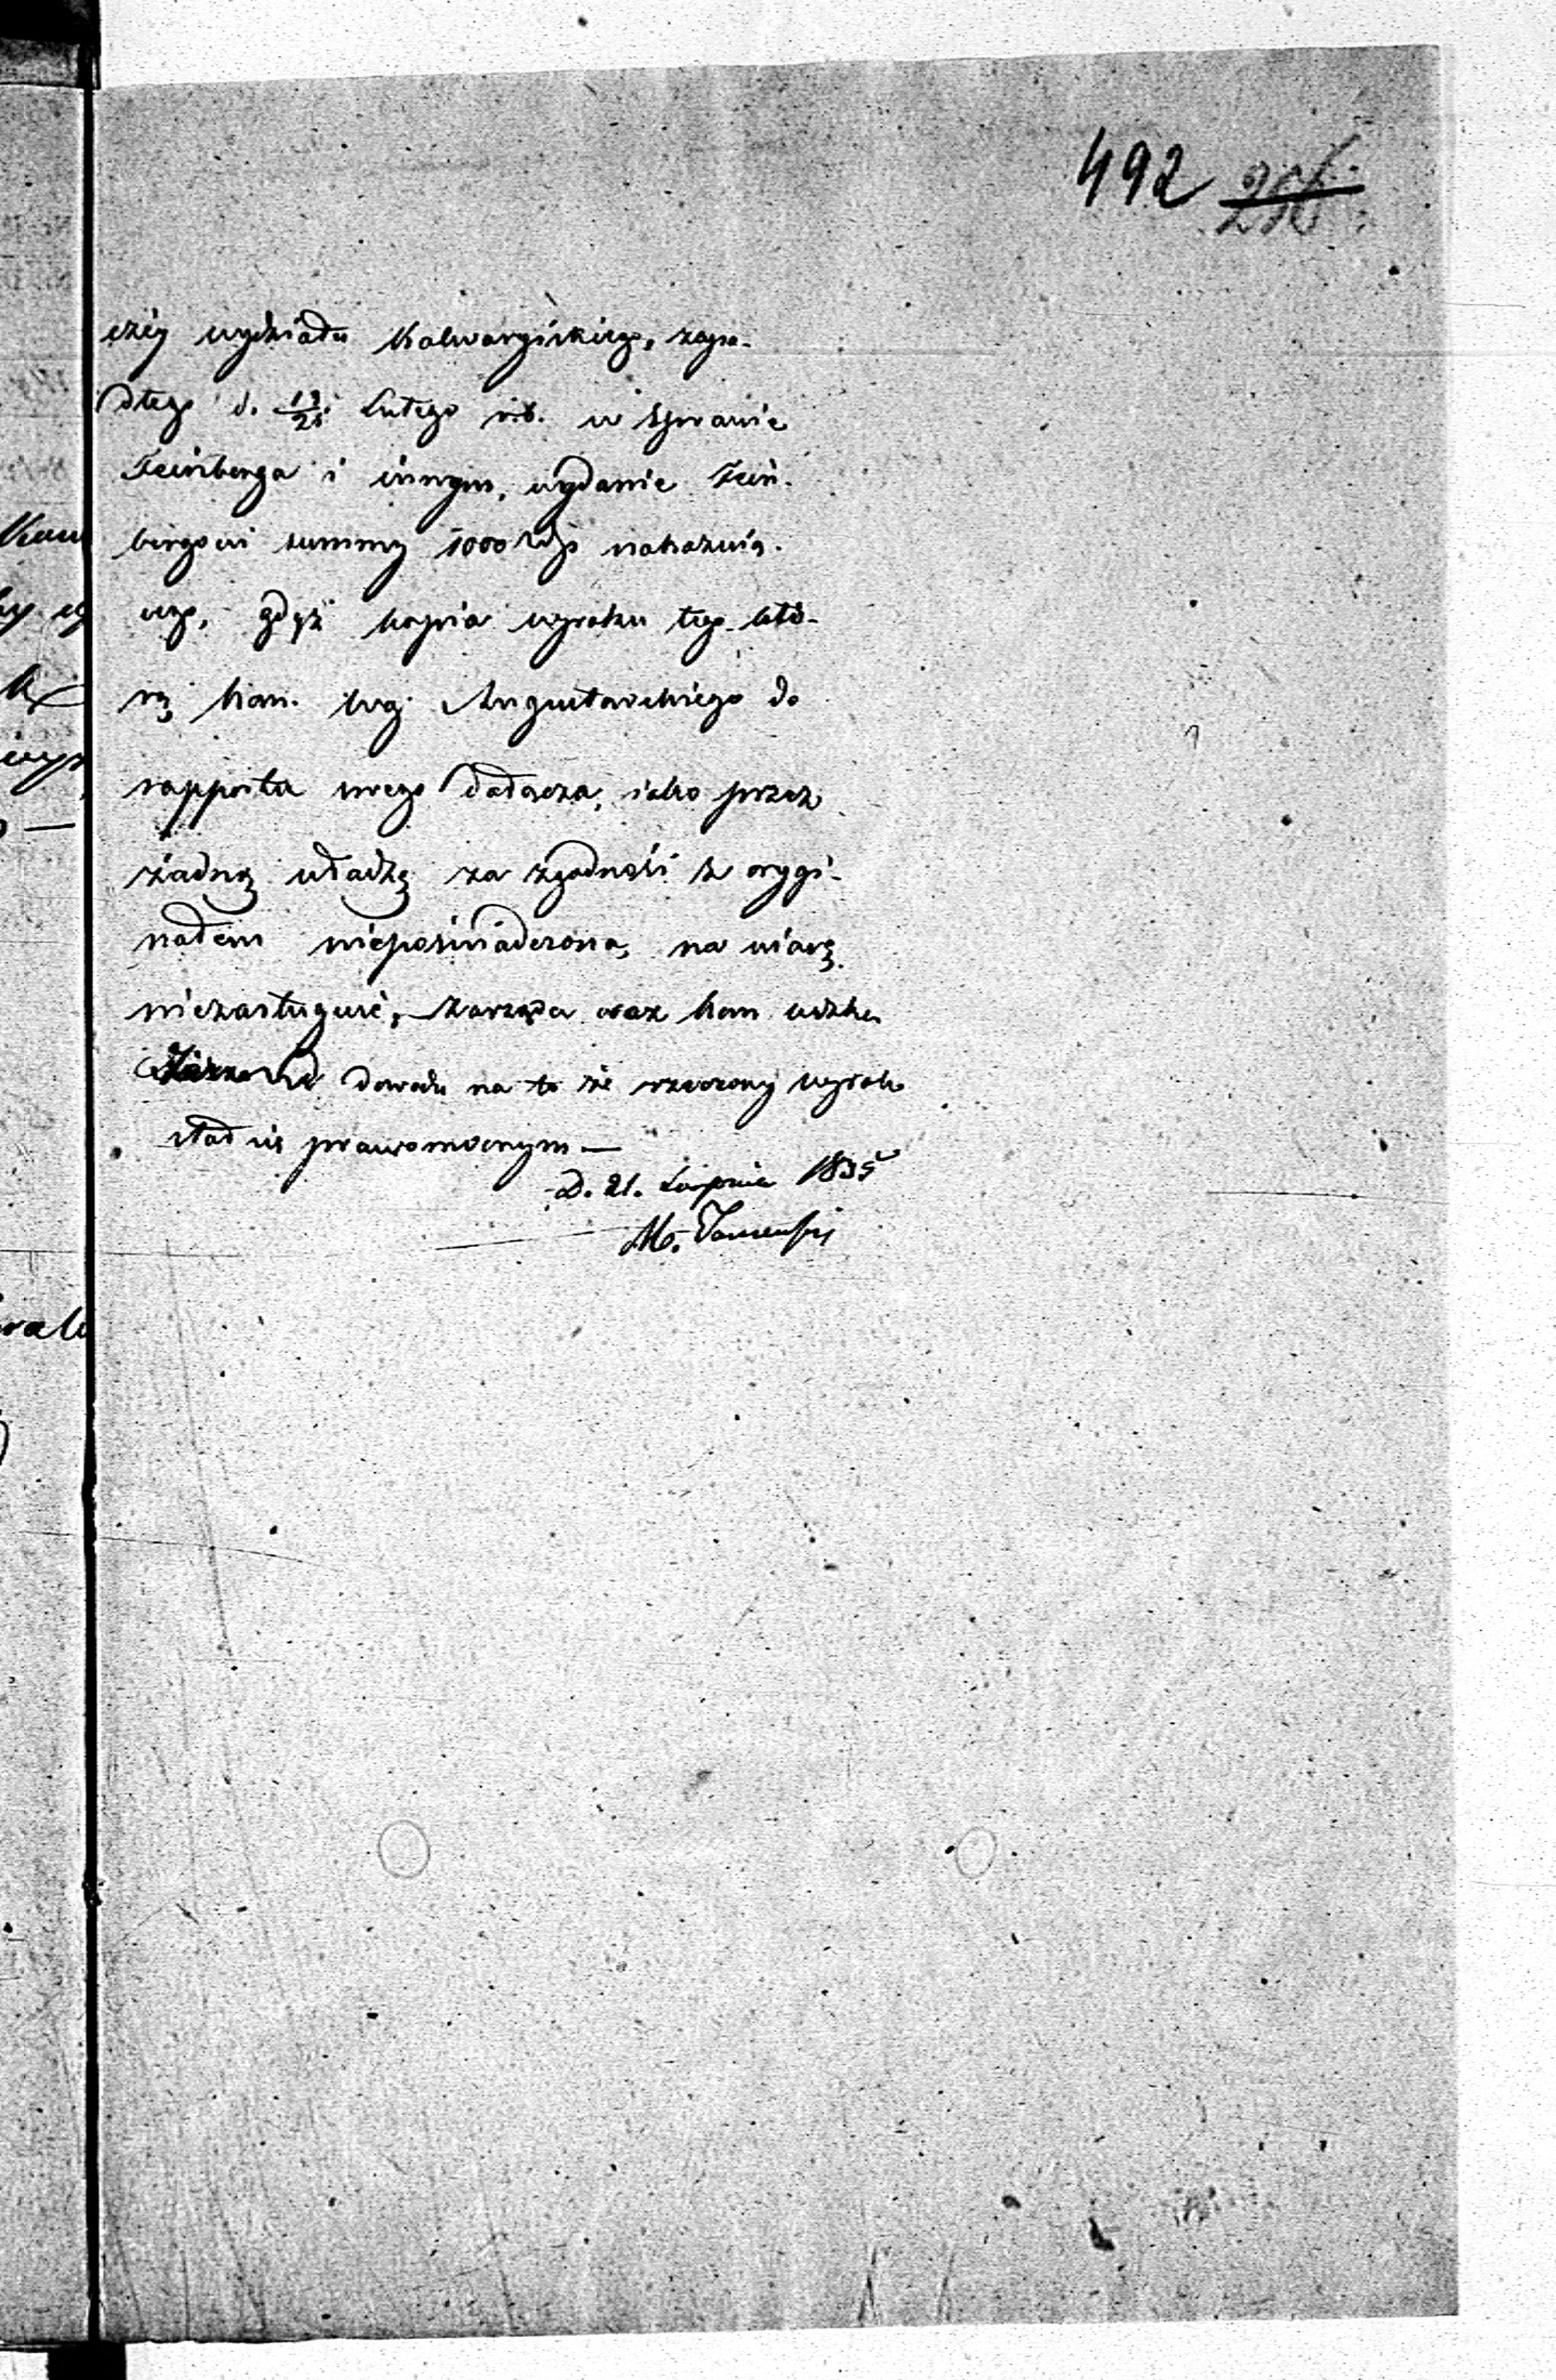 492 256
czéy wydziału Kalwaryiskiego, zapa-
dłego d. 13/25 Lutego r.b. w sprawie
Feinberga i innym, wydanie Fein-
bergowi summy 1000 Złp nakazuią-
cego, gdyż kopia wyroku tego któ-
rą kom. wój. Augustowskiego do
rapportu swego dołącza, iako przez
żadną władzę za zgodność z orygi-
nałem niepoświadczona, na wiarę
niezasługuie, zarząda oraz kom
dowodu na to że rzeczony wyrok
stał się prawomocnym —
D. 21. Lipnia 1835
M.